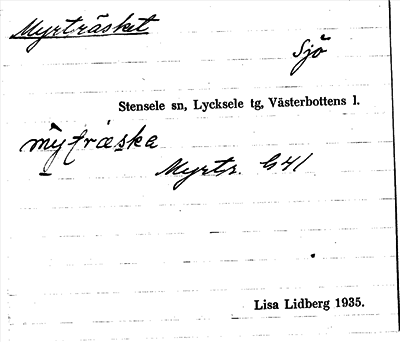 Myrträsket
Sjö
Stensele sn, Lycksele tg, Västerbottens l.
Myrtr. G41
Lisa Lidberg 1935.